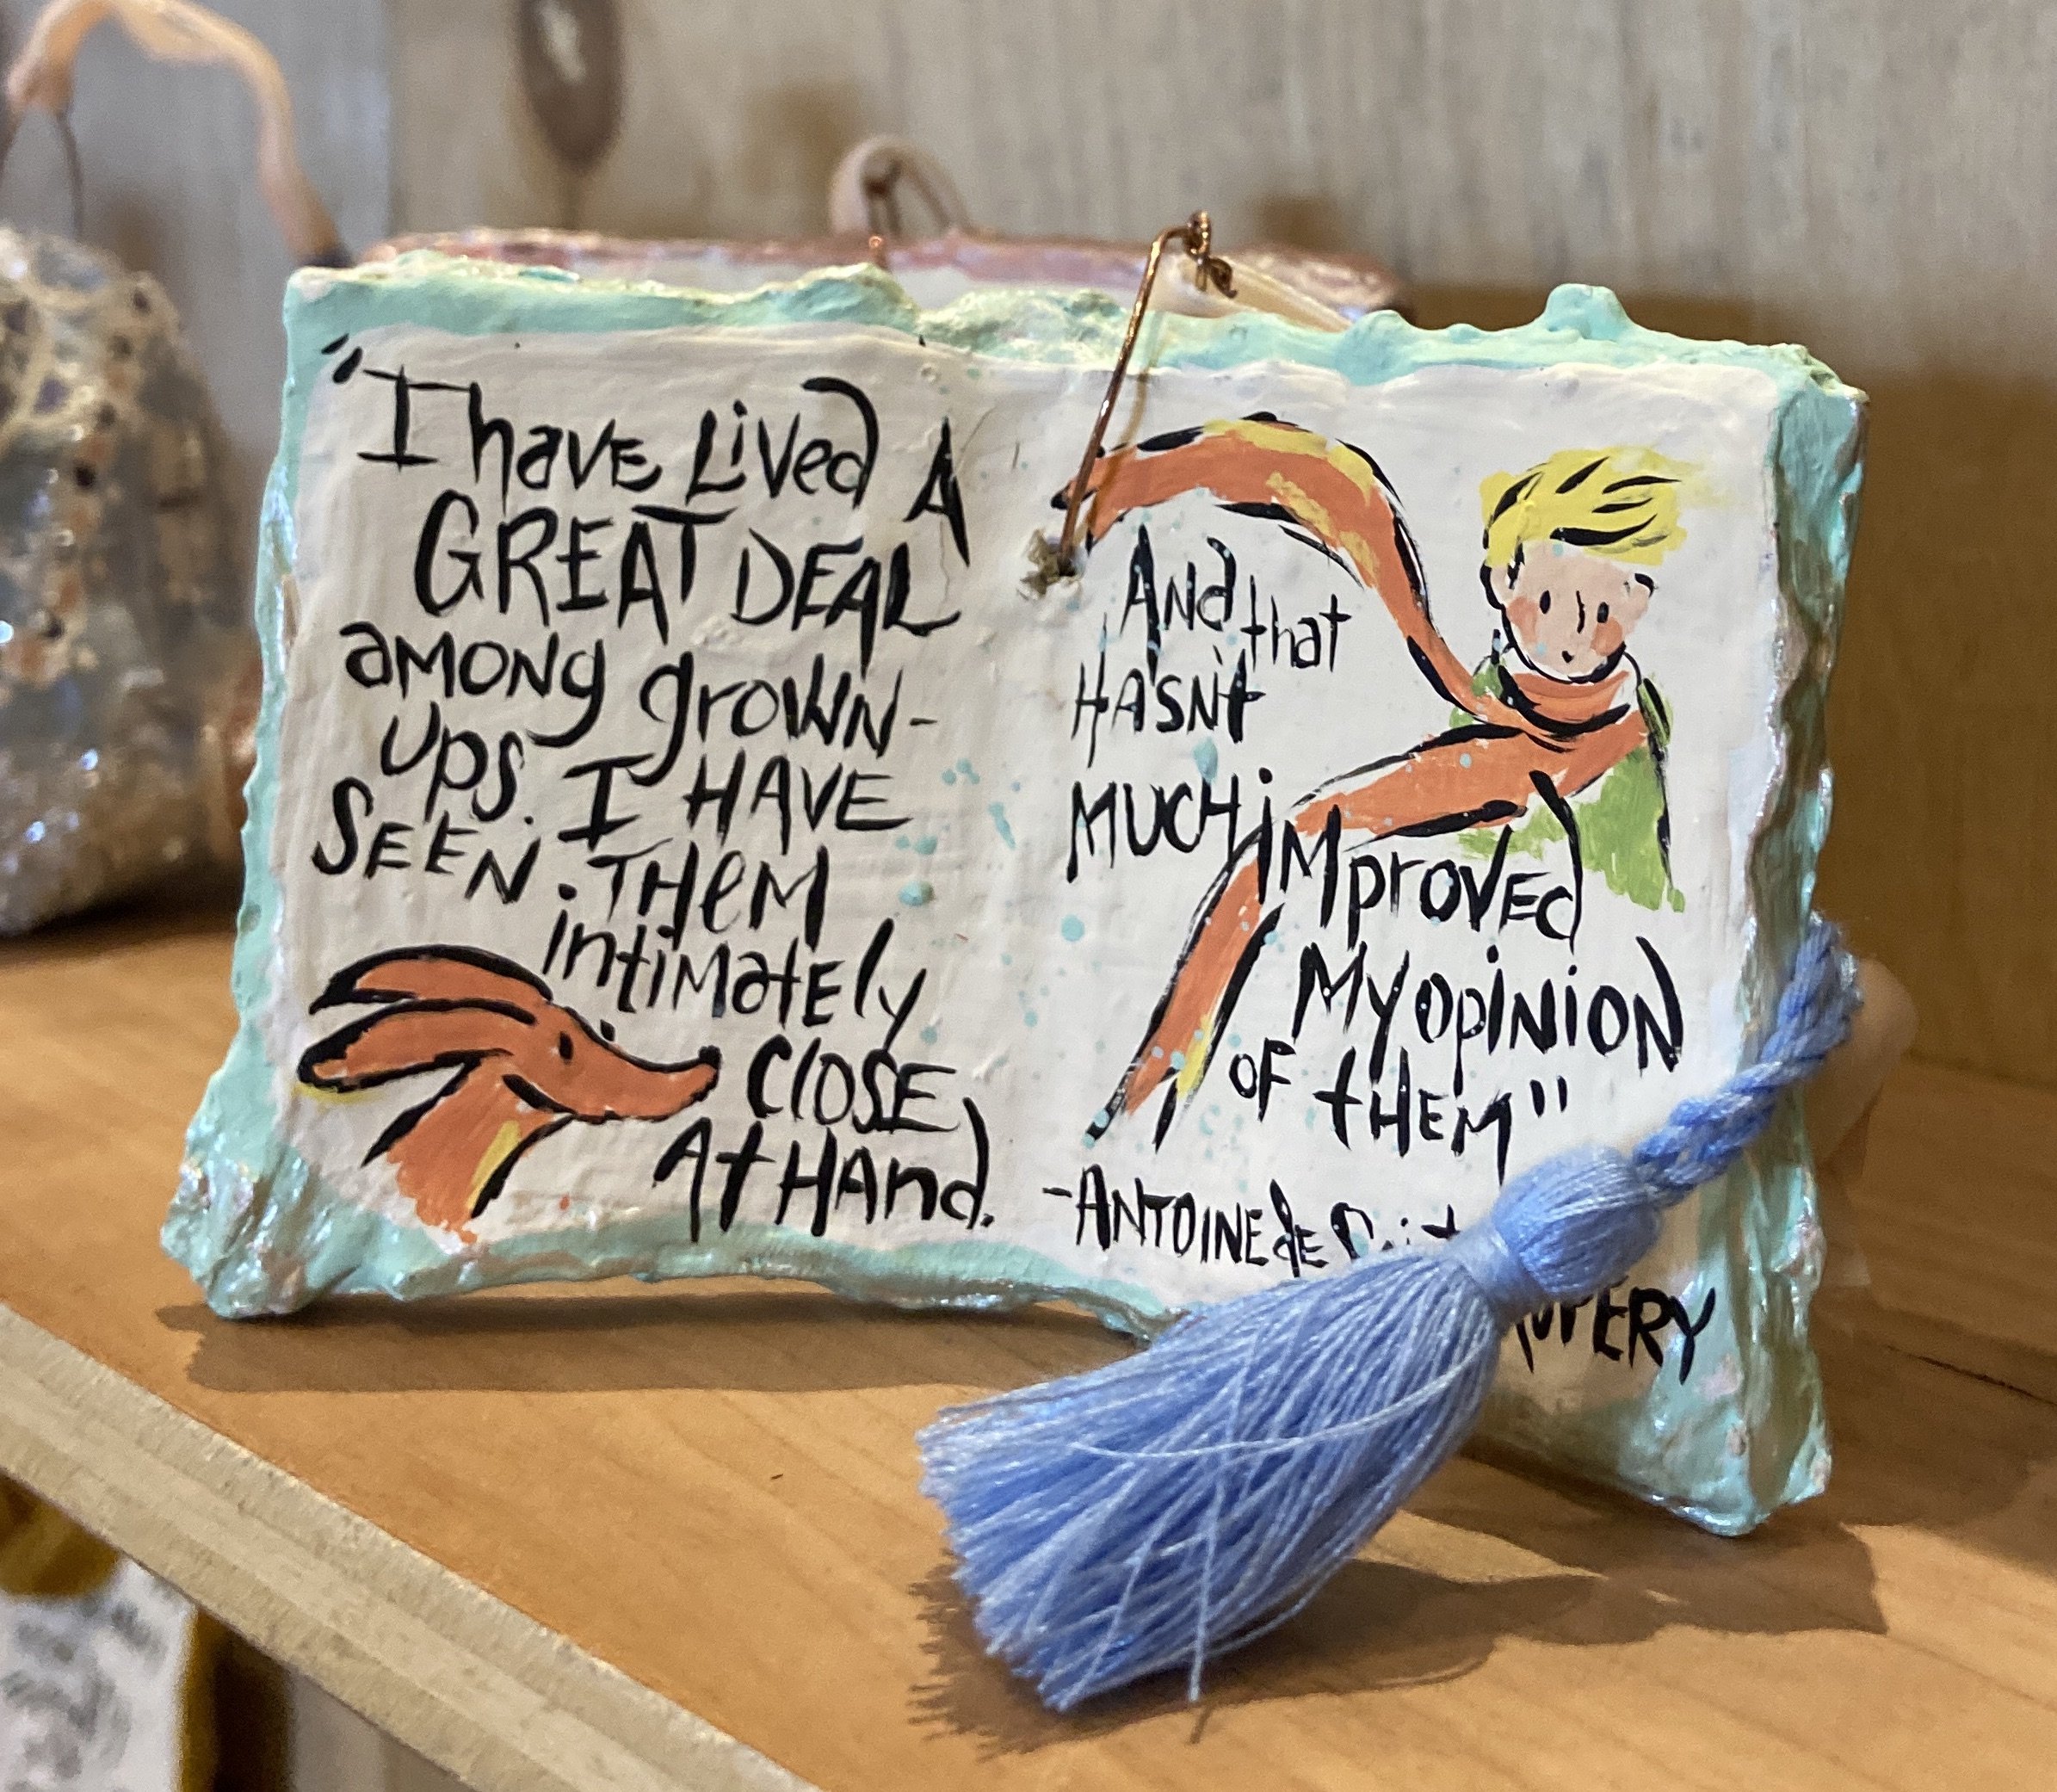 "I have Lived A
GREAT DEAL
among grown-
ups. I HAVE
SEEN THEM
intimately
CLOSE
At HAnd.
And that
HASN't
MUCH iMproved
My opinion
OF tHEM"
-ANTOINE de